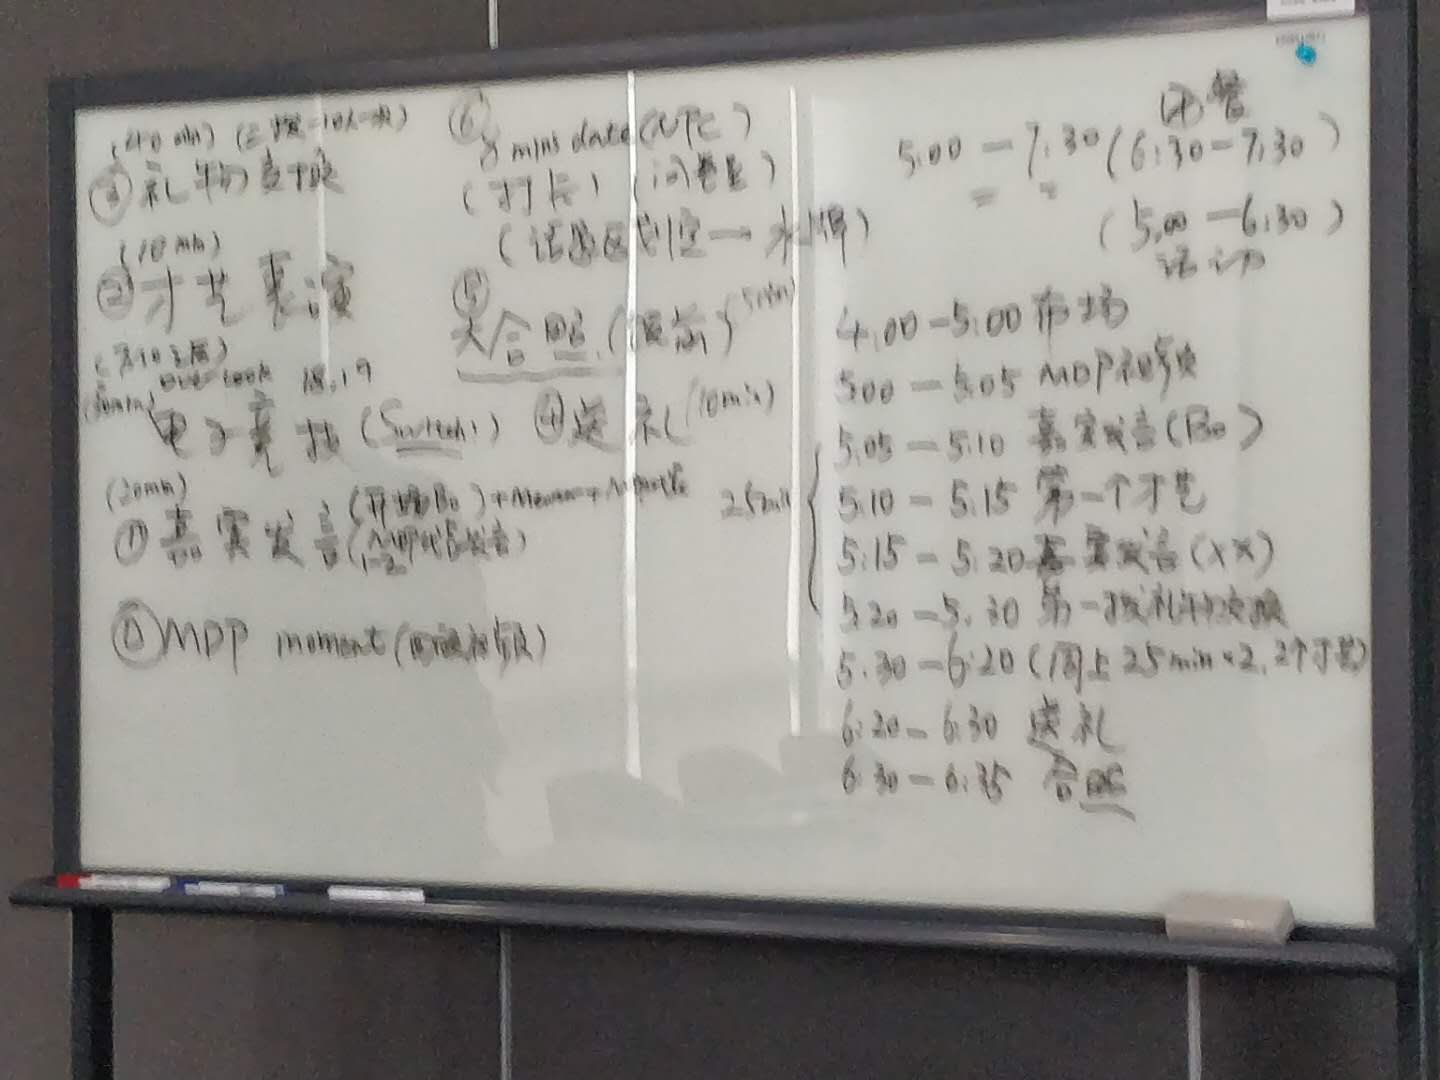 (40 min) (三
③ 礼物交换
(10 min)
② 才艺表演
18,19
电子竞技 (Switch)
(20min)
① 嘉宾发言 (开场Bo)
⓪ MDP moment (
⑥ 8 mins date (NPC)
(打卡) (问卷星)
(话题区划定 → 水牌)
⑤ 大合照 (提前) 5min
④ 送礼 (10min)
团餐
5:00 — 7:30 (6:30 — 7:30)
(5:00 — 6:30)
活动
4:00 — 5:00 布场
5:00 — 5:05 MDP视频
5:05 — 5:10 嘉宾发言 (Bo)
25min
5:10 — 5:15 第一个才艺
5:15 — 5:20 嘉宾发言 (XX)
5:20 — 5:30 第一拨礼物交换
5:30 — 6:20 (同上 25min × 2, 2个才艺)
6:20 — 6:30 送礼
6:30 — 6:35 合照